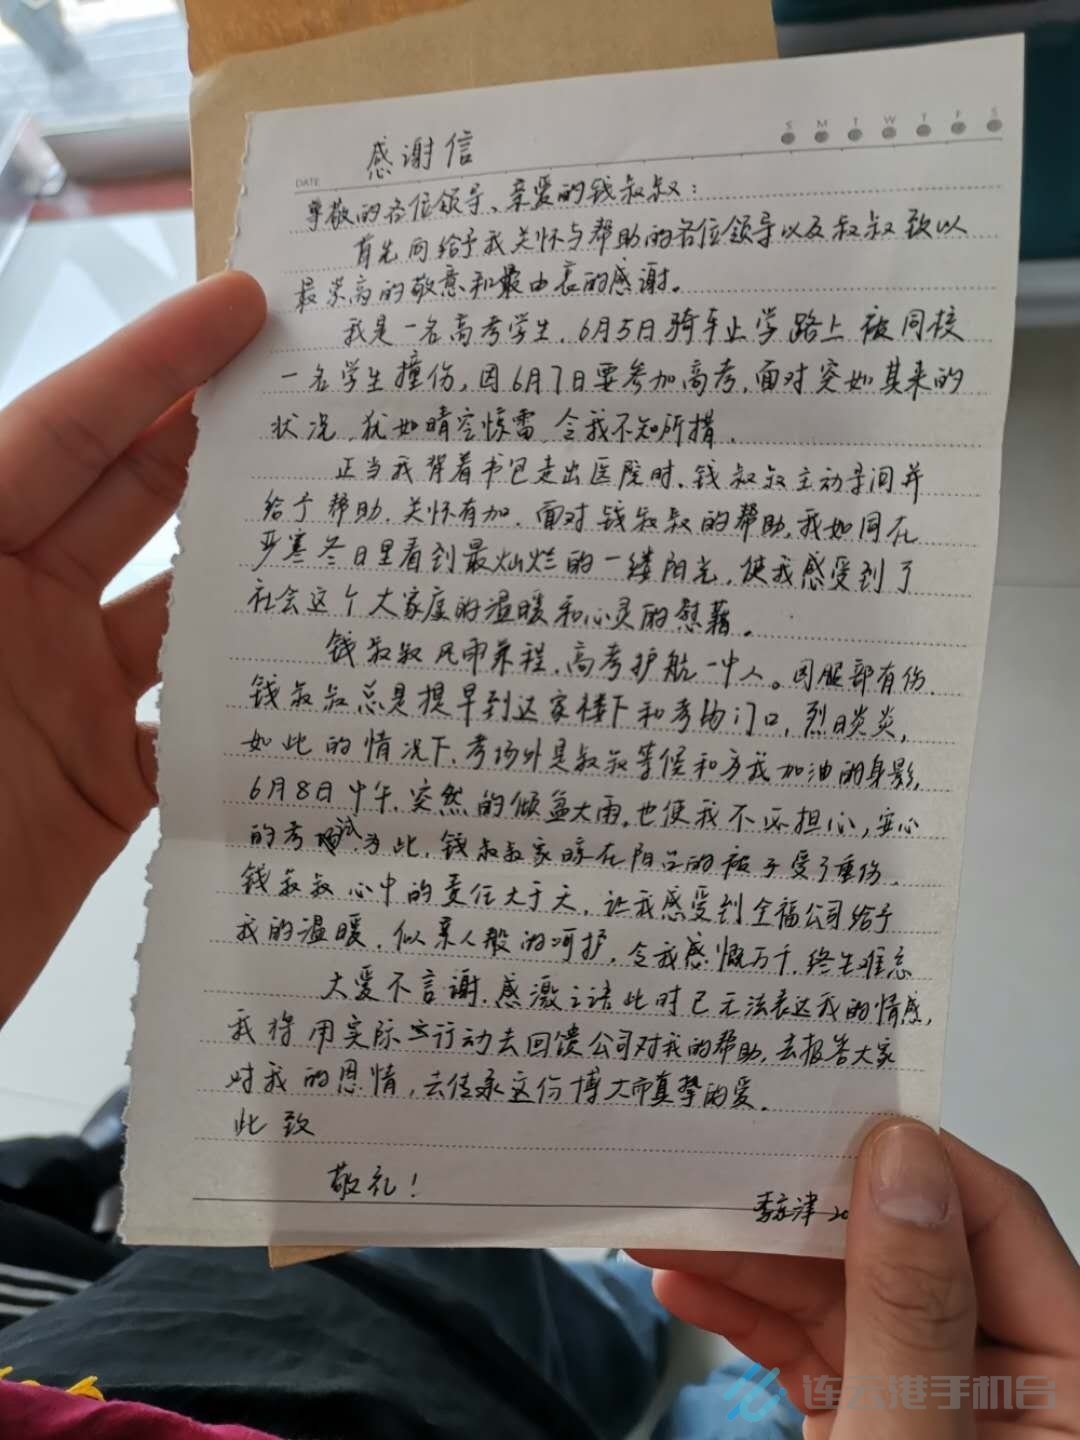 S M T W T F S
DATE
感谢信
尊敬的各位领导、亲爱的钱叔叔:
首先向给予我关怀与帮助的各位领导以及叔叔致以
最崇高的敬意和最由衷的感谢。
我是一名高考学生,6月5日骑车上学路上被同校
一名学生撞伤,因6月7日要参加高考,面对突如其来的
状况,犹如晴空惊雷,令我不知所措.
正当我背着书包走出医院时,钱叔叔主动寻问并
给予帮助,关怀有加,面对钱叔叔的帮助,我如同在
严寒冬日里看到最灿烂的一缕阳光,使我感受到了
社会这个大家庭的温暖和心灵的慰藉。
钱叔叔风雨兼程,高考护航一中人。因腿部有伤,
钱叔叔总是提早到达家楼下和考场门口,烈日炎炎,
如此的情况下,考场外是叔叔等候和为我加油的身影,
6月8日中午,突然的倾盆大雨,也使我不必担心,安心
的考试,为此,钱叔叔家晾在阳台的被子受了重伤,
钱叔叔心中的责任大于天,让我感受到全福公司给予
我的温暖,似亲人般的呵护,令我感慨万千,终生难忘
大爱不言谢,感激之语此时已无法表达我的情感,
我将用实际行动去回馈公司对我的帮助,去报答大家
对我的恩情,去传承这份博大而真挚的爱。
此致
敬礼!
津 20
连云港手机台